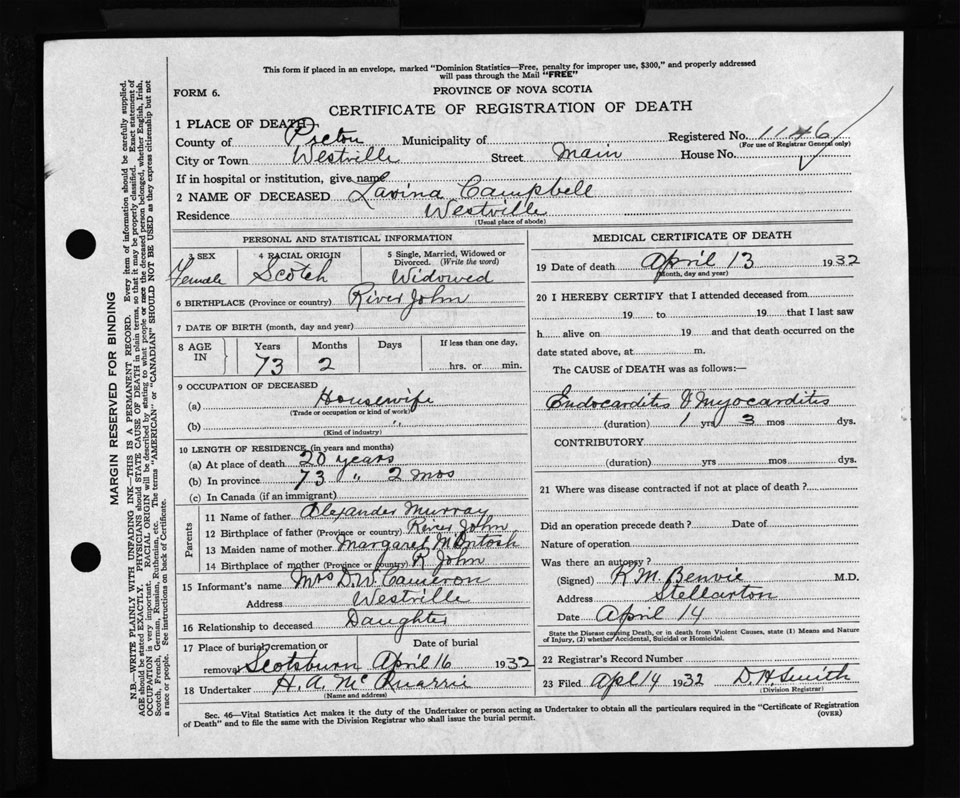 This form if placed in an envelope, marked "Dominion Statistics—Free, penalty for improper use, $300," and properly addressed
will pass through the Mail "FREE"
FORM 6.
PROVINCE OF NOVA SCOTIA
CERTIFICATE OF REGISTRATION OF DEATH
1 PLACE OF DEATH
County of Pictou Municipality of Registered No. 1146
(For use of Registrar General only)
City or Town Westville Street Main House No.
If in hospital or institution, give name
2 NAME OF DECEASED Lavina Campbell
Residence Westville
(Usual place of abode)
PERSONAL AND STATISTICAL INFORMATION
3 SEX 4 RACIAL ORIGIN 5 Single, Married, Widowed or
Divorced. (Write the word)
Female Scotch Widowed
6 BIRTHPLACE (Province or country) River John
7 DATE OF BIRTH (month, day and year)
8 AGE IN Years Months Days If less than one day,
73 2 hrs. or min.
9 OCCUPATION OF DECEASED
(a) Housewife
(Trade or occupation or kind of work)
(b) "
(Kind of industry)
10 LENGTH OF RESIDENCE (in years and months)
(a) At place of death 20 years
(b) In province 73 " 2 mos
(c) In Canada (if an immigrant)
Parents
11 Name of father Alexander Murray
12 Birthplace of father (Province or country) River John
13 Maiden name of mother Margaret McIntosh
14 Birthplace of mother (Province or country) R John
15 Informant's name Mrs D.W. Cameron
Address Westville
16 Relationship to deceased Daughter
17 Place of burial, cremation or Date of burial
removal Scotsburn April 16 1932
18 Undertaker H. A. McQuarrie
(Name and address)
MEDICAL CERTIFICATE OF DEATH
19 Date of death April 13 1932
(Month, day and year)
20 I HEREBY CERTIFY that I attended deceased from
19 to 19 that I last saw
h alive on 19 and that death occurred on
date stated above, at m.
The CAUSE of DEATH was as follows:—
Endocarditis & Myocarditis
(duration) 1 yrs 3 mos dys.
CONTRIBUTORY
(duration) yrs mos dys.
21 Where was disease contracted if not at place of death?
Did an operation precede death? Date of
Nature of operation
Was there an autopsy?
(Signed) R.M. Benvie M.D.
Address Stellarton
Date April 14
State the Disease causing Death, or in death from Violent Causes, state (1) Means and Nature
of Injury, (2) whether Accidental, Suicidal or Homicidal.
22 Registrar's Record Number
23 Filed Apl 14 1932 D. H. Smith
(Division Registrar)
Sec. 46—Vital Statistics Act makes it the duty of the Undertaker or person acting as Undertaker to obtain all the particulars required in the "Certificate of Registration
of Death" and to file the same with the Division Registrar who shall issue the burial permit.
(OVER)
MARGIN RESERVED FOR BINDING
N.B.—WRITE PLAINLY WITH UNFADING INK—THIS IS A PERMANENT RECORD. Every item of information should be carefully supplied.
AGE should be stated EXACTLY. PHYSICIANS should STATE CAUSE OF DEATH in plain terms, so that it may be properly classified. Exact statement of
OCCUPATION is very important. RACIAL ORIGIN will be described by stating to what people or race the deceased person belonged, whether English, Irish,
Scotch, French, German, Russian, Ruthenian, etc. The terms "AMERICAN" or "CANADIAN" SHOULD NOT BE USED as they express citizenship but not
a race or people. See instructions on back of Certificate.